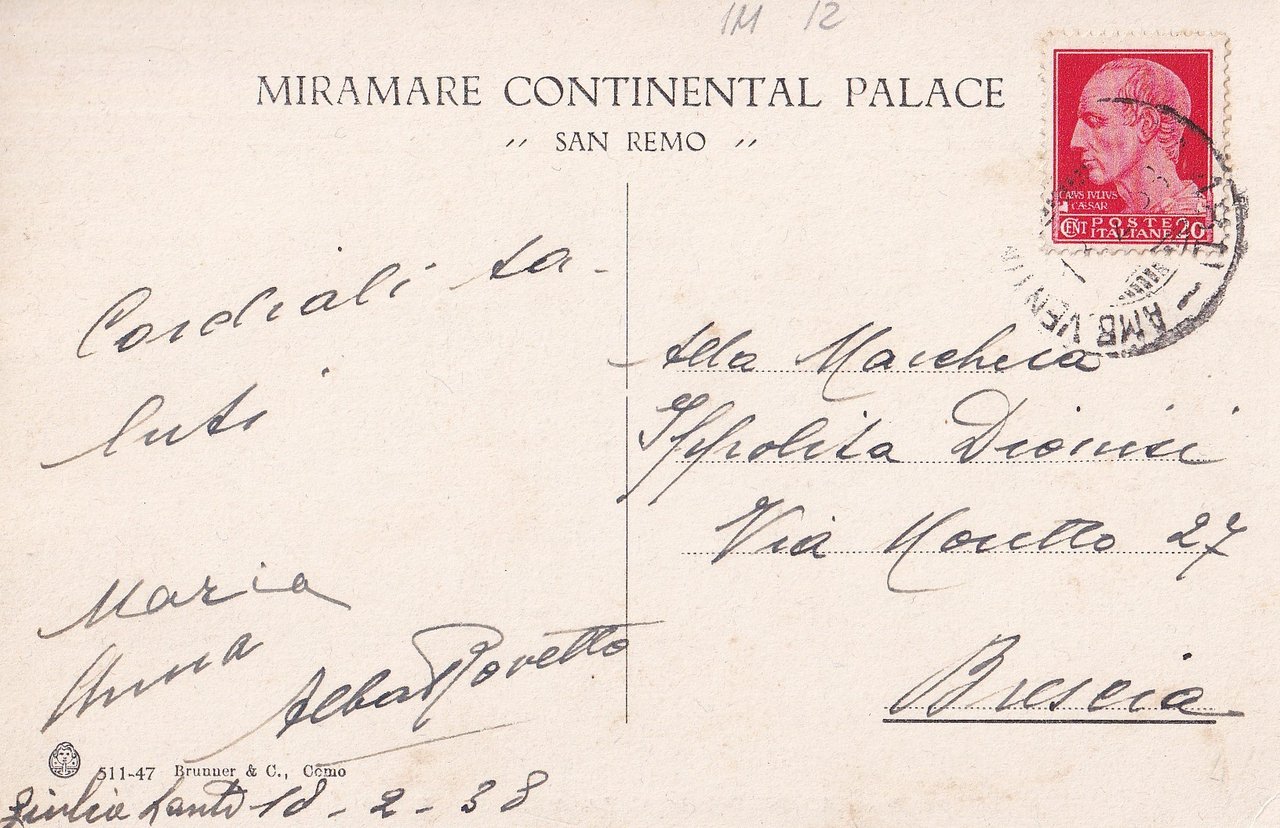 1M 12
MIRAMARE CONTINENTAL PALACE
,, SAN REMO ,,
CAIVS IVLIVS
CÆSAR
CENT POSTE ITALIANE 20
AMB. VENTIM
Cordiali sa-
luti
Maria
Anna
Alba Rovetto
511-47 Brunner & C., Como
Giulia 18-2-38
Alla Marchesa
Ippolita Dionisi
Via Moretto 27
Brescia